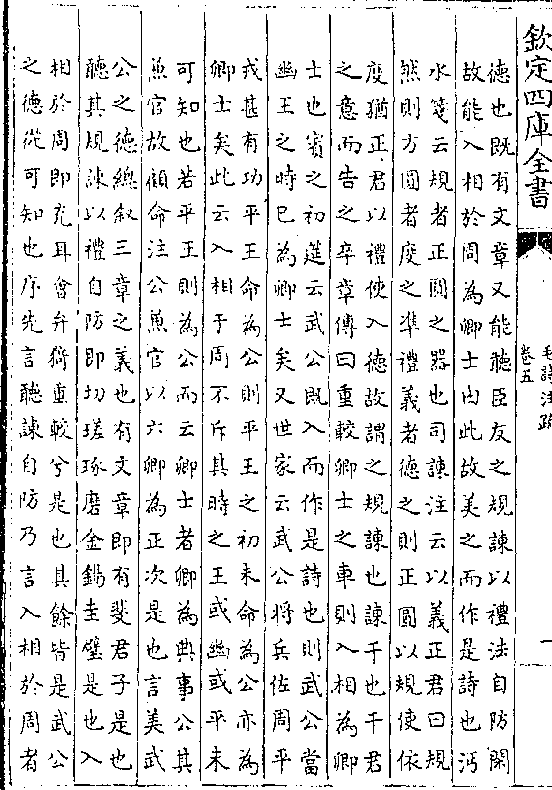 欽定四庫全書
毛詩注疏
卷五
一
德也既有文章又能聽臣友之規諫以禮法自防閑
故能入相於周為卿士由此故美之而作是詩也沔
水箋云規者正圓之器也司諫注云以義正君曰規
然則方圓者度之準禮義者德之則正圓以規使依
度猶正君以禮使入德故謂之規諫也諫干也干君
之意而告之卒章傳曰重較卿士之車則入相為卿
士也賓之初筵云武公既入而作是詩也則武公當
幽王之時已為卿士矣又世家云武公將兵佐周平
戎甚有功平王命為公則平王之初未命為公亦為
卿士矣此云入相于周不斥其時之王或幽或平未
可知也若平王則為公而云卿士者卿為典事公其
兼官故顧命注公兼官以六卿為正次是也言美武
公之德總叙三章之義也有文章即有斐君子是也
聽其規諫以禮自防即切瑳琢磨金錫圭璧是也入
相於周即充耳會弁猗重較兮是也其餘皆是武公
之德從可知也序先言聽諫自防乃言入相於周者